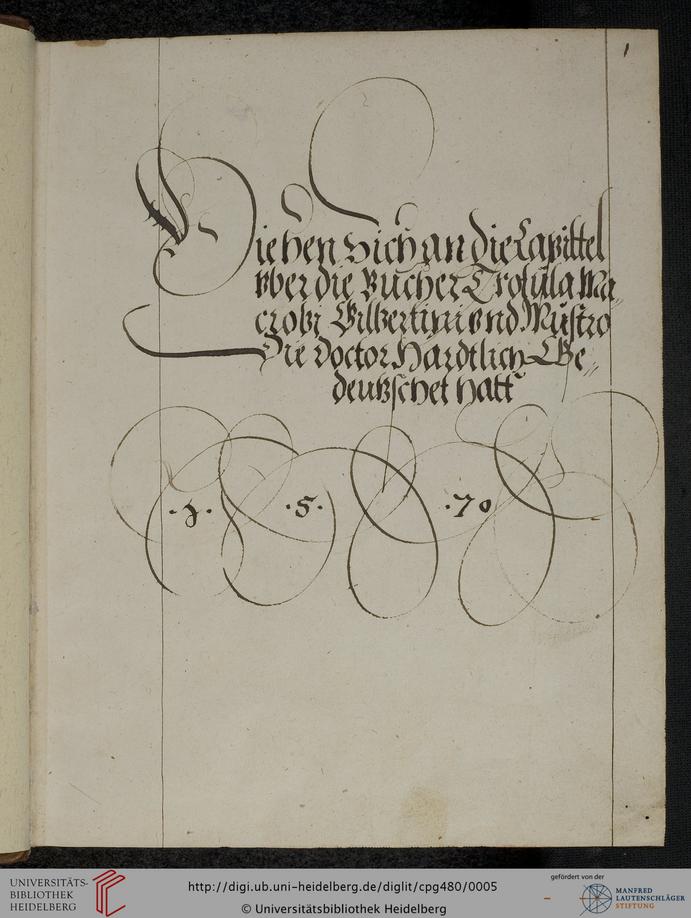 1
Die hen Sich an die Capittel
vber die Bucher Trotula Ma„
crobi Gilbertini vnd Mustro
Die doctor Hardtlich Ge„
deutzschet hatt
·1· ·5· ·70
UNIVERSITÄTS-
BIBLIOTHEK
HEIDELBERG
http://digi.ub.uni-heidelberg.de/diglit/cpg480/0005
© Universitätsbibliothek Heidelberg
gefördert von der
MANFRED
LAUTENSCHLÄGER
STIFTUNG